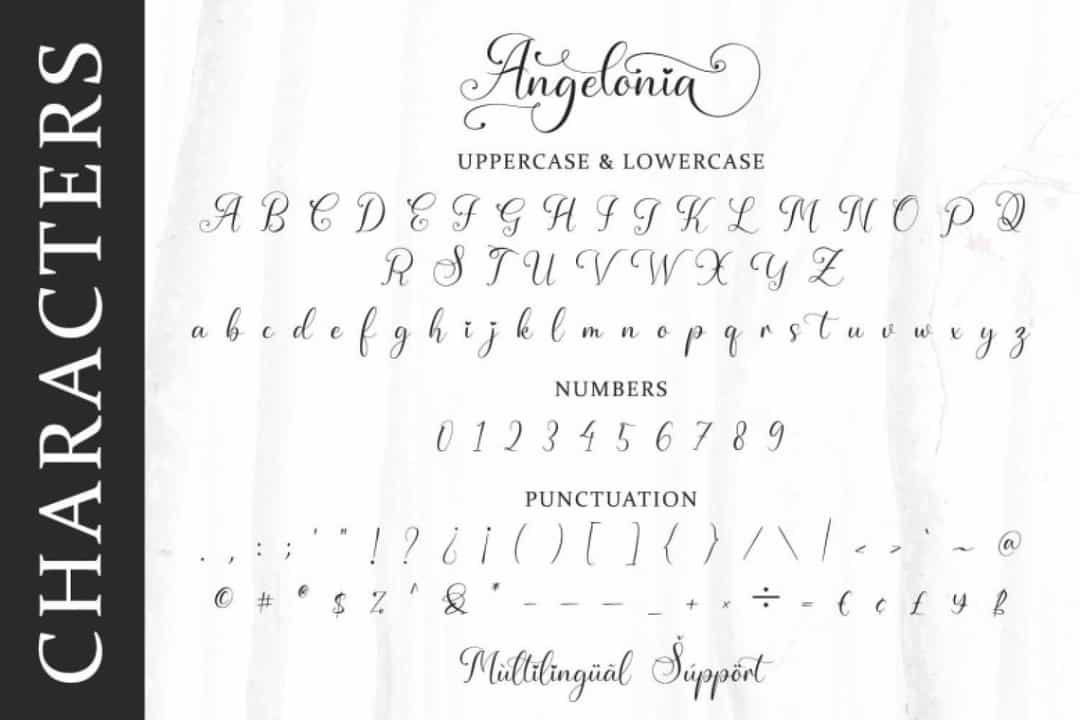 CHARACTERS
Angelonia
UPPERCASE & LOWERCASE
A B C D E F G H I J K L M N O P Q
R S T U V W X Y Z
a b c d e f g h i j k l m n o p q r s t u v w x y z
NUMBERS
0 1 2 3 4 5 6 7 8 9
PUNCTUATION
. , : ; ' " ! ? ¿ ¡ ( ) [ ] { } / \ | < > ` ~ @
© # ® $ % ^ & * - – — _ + × ÷ = € ¢ £ ¥ ß
Mùltilingüãl Šúppört